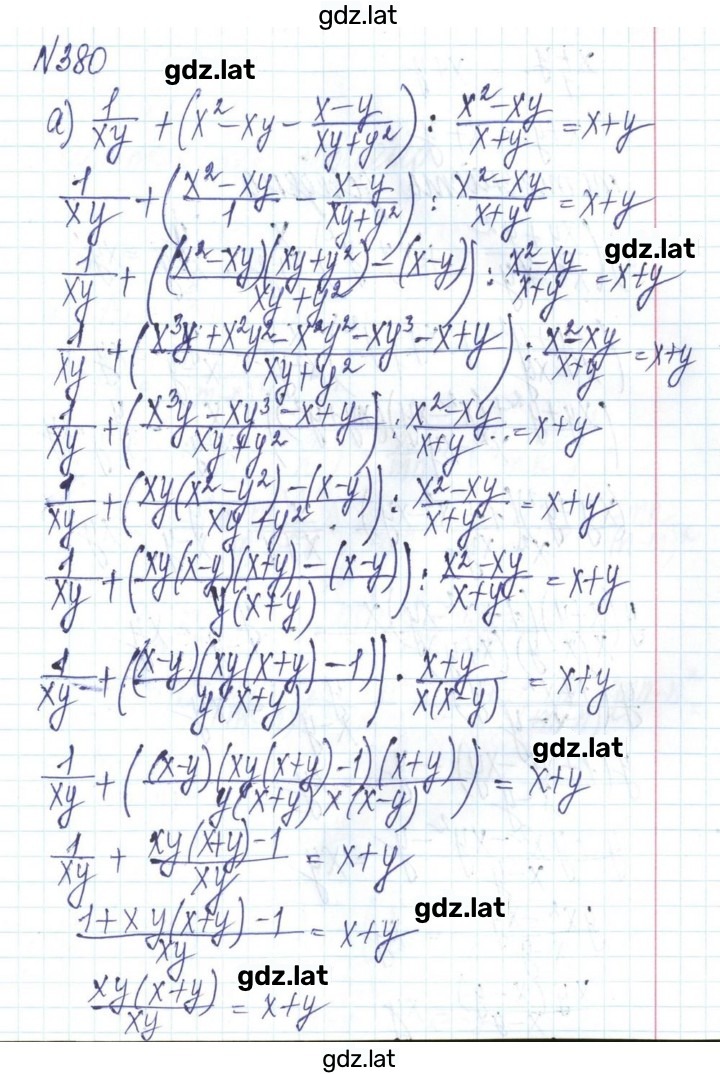 gdz.lat
N380
gdz.lat
а) 1/(xy) + (x² - xy - (x-y)/(xy+y²)) : (x²-xy)/(x+y) = x+y
1/(xy) + ((x²-xy)/1 - (x-y)/(xy+y²)) : (x²-xy)/(x+y) = x+y
gdz.lat
1/(xy) + (((x²-xy)(xy+y²)-(x-y))/(xy+y²)) : (x²-xy)/(x+y) = x+y
1/(xy) + ((x³y+x²y²-x²y²-xy³-x+y)/(xy+y²)) : (x²-xy)/(x+y) = x+y
1/(xy) + ((x³y-xy³-x+y)/(xy+y²)) : (x²-xy)/(x+y) = x+y
1/(xy) + ((xy(x²-y²)-(x-y))/(xy+y²)) : (x²-xy)/(x+y) = x+y
1/(xy) + ((xy(x-y)(x+y)-(x-y))/(y(x+y))) : (x²-xy)/(x+y) = x+y
1/(xy) + (((x-y)(xy(x+y)-1))/(y(x+y))) · (x+y)/(x(x-y)) = x+y
gdz.lat
1/(xy) + (((x-y)(xy(x+y)-1)(x+y))/(y(x+y)x(x-y))) = x+y
1/(xy) + (xy(x+y)-1)/(xy) = x+y
gdz.lat
(1+xy(x+y)-1)/(xy) = x+y
gdz.lat
(xy(x+y))/(xy) = x+y
gdz.lat